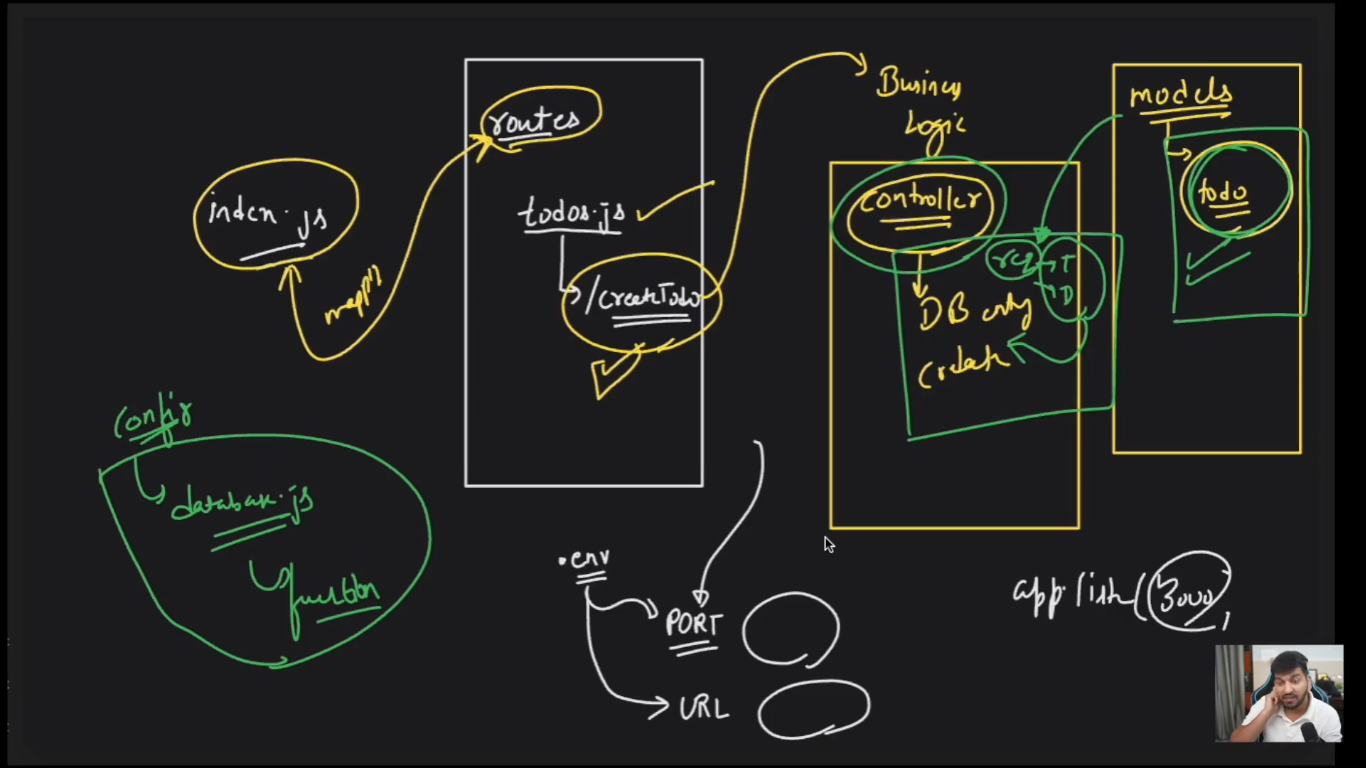 routes
index.js
todos.js
/createTodo
Business
Logic
controller
req
T
D
DB entry
create
models
todo
config
database.js
function
.env
PORT
URL
app.listen(3000,